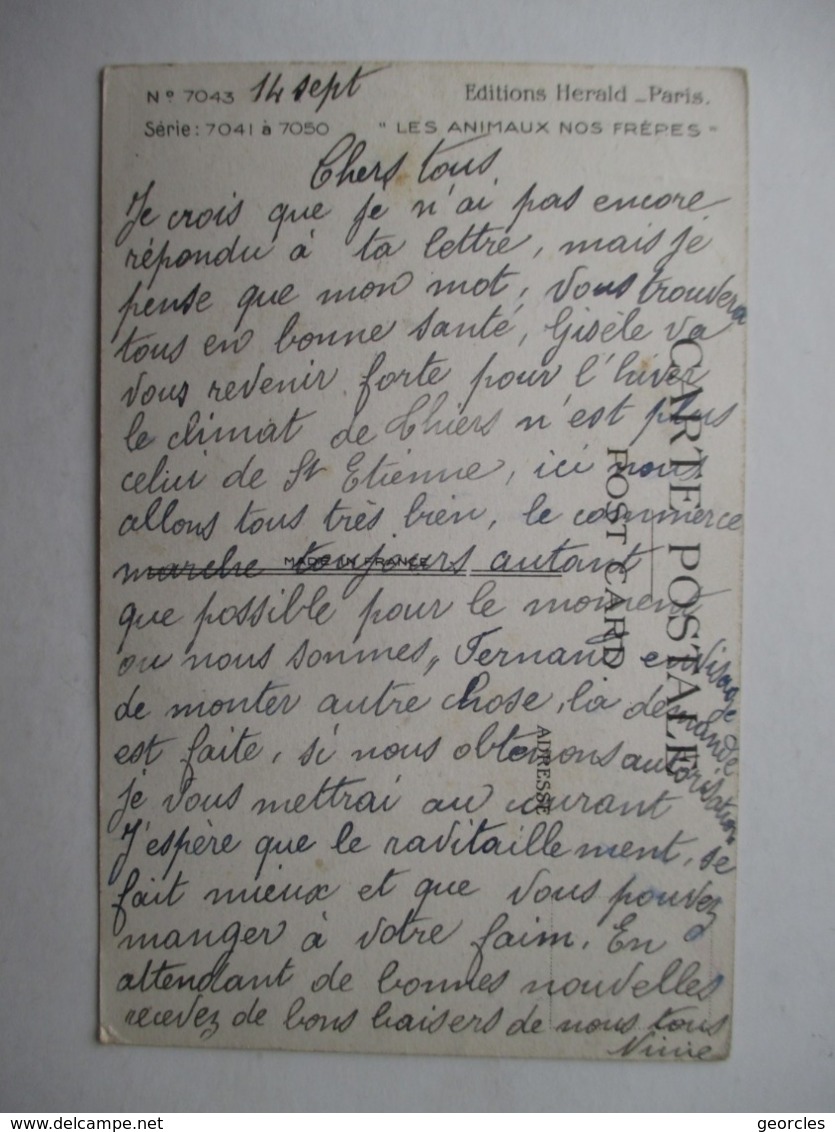 Nº 7043 14 sept Editions Herald - Paris.
Série : 7041 à 7050 " LES ANIMAUX NOS FRÈRES "
Chers tous.
Je crois que je n'ai pas encore
répondu à ta lettre, mais je
pense que mon mot, vous trouvera
tous en bonne santé, Gisèle va
vous revenir forte pour l'hiver
le climat de Thiers n'est plus
celui de St Etienne, ici nous
allons tous très bien, le commerce
marche toujours autant
MADE IN FRANCE
que possible pour le moment
ou nous sommes, Fernand envisage
de monter autre chose, la demande
est faite, si nous obtenons autorisation
je vous mettrai au courant
J'espère que le ravitaillement, se
fait mieux et que vous pouvez
manger à votre faim. En
attendant de bonnes nouvelles
recevez de bons baisers de nous tous
CARTE POSTALE
POST CARD
ADRESSE
georcles